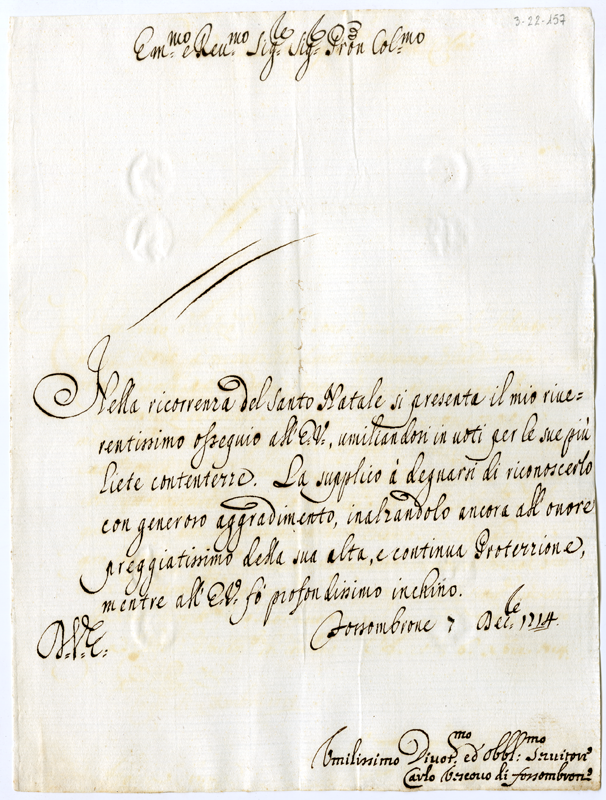 3-22-157
Em:mo e Reu:mo Sig:re Sig:re Pron Col:mo
Nella ricorrenza del Santo Natale si presenta il mio riue=
rentissimo osseguio all'E.V., umiliandosi in uoti per le sue più
liete contentezze. La supplico à degnarsi di riconoscerlo
con generoso aggradimento, inalzandolo ancora all'onore
preggiatissimo della sua alta, e continua Protezzione,
mentre all'E.V. fò profondissimo inchino.
D. V. E. Fossombrone 7 De[c]:re 1714.
Vmilissimo Diuot:mo ed Obbl:mo Seruitore
Carlo Vescouo di fossombrone